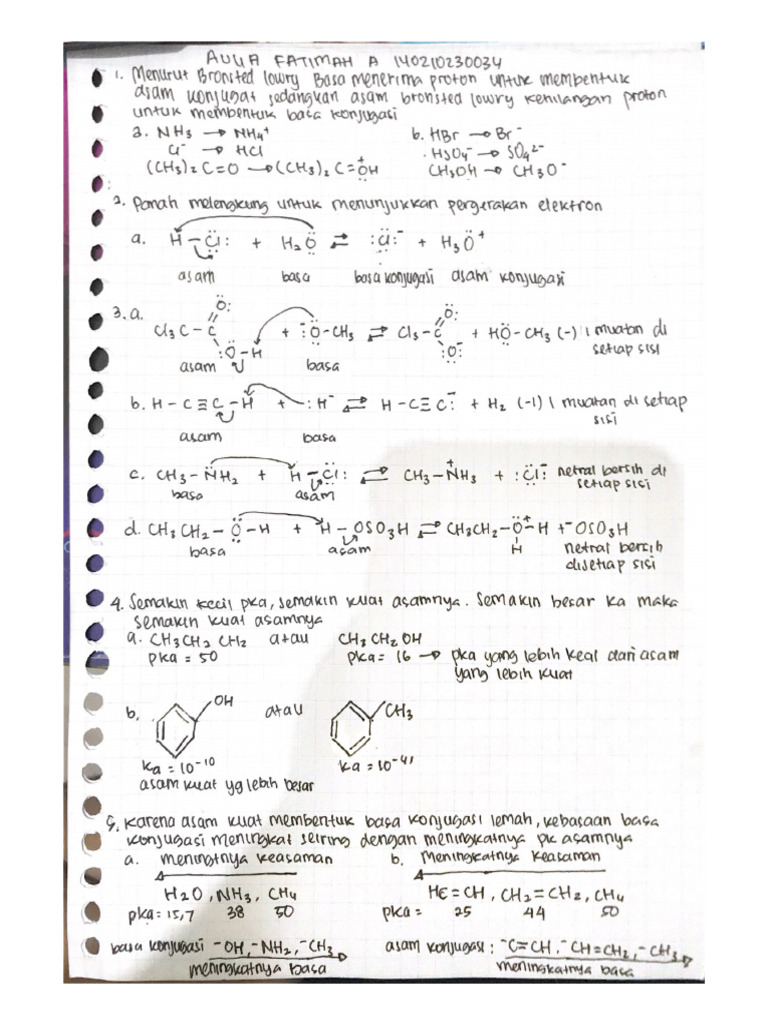 AULIA FATIMAH A 140210230034
1. Menurut Bronsted lowry Basa menerima proton untuk membentuk
asam konjugat sedangkan asam bronsted lowry kehilangan proton
untuk membentuk basa konjugasi
a. NH3 → NH4+ b. HBr → Br-
Cl- → HCl HSO4- → SO4 2-
(CH3)2 C=O → (CH3)2 C=OH+ CH3OH → CH3O-
2. Panah melengkung untuk menunjukkan pergerakan elektron
a. H-Cl: + H2O ⇌ :Cl:- + H3O+
asam basa basa konjugasi asam konjugasi
3. a. Cl3C-C O: :O-H + -:O-CH3 ⇌ Cl3-C O: :O:- + HO-CH3 (-) 1 muatan di
setiap sisi
asam basa
b. H-C≡C-H + :H- ⇌ H-C≡C:- + H2 (-1) 1 muatan di setiap
sisi
asam basa
c. CH3-NH2 + H-Cl: ⇌ CH3-NH3+ + :Cl:- netral bersih di
setiap sisi
basa asam
d. CH3CH2-O-H + H-OSO3H ⇌ CH3CH2-O+-H + -OSO3H
H
basa asam netral bersih
disetiap sisi
4. Semakin kecil pka, semakin kuat asamnya. Semakin besar ka maka
semakin kuat asamnya
a. CH3CH2CH2 atau CH3CH2OH
pka = 50 pka = 16 → pka yang lebih kecil dari asam
yang lebih kuat
b. OH atau CH3
ka = 10-10 ka = 10-41
asam kuat yg lebih besar
5. Karena asam kuat membentuk basa konjugasi lemah, kebasaan basa
konjugasi meningkat seiring dengan meningkatnya pk asamnya
a. meningtnya keasaman b. Meningkatnya keasaman
H2O, NH3, CH4 HC=CH, CH2=CH2, CH4
pka = 15,7 38 50 pka = 25 44 50
basa konjugasi -OH, -NH2, -CH3 asam konjugasi : -C=CH, -CH=CH2, -CH3
meningkatnya basa meningkatnya basa